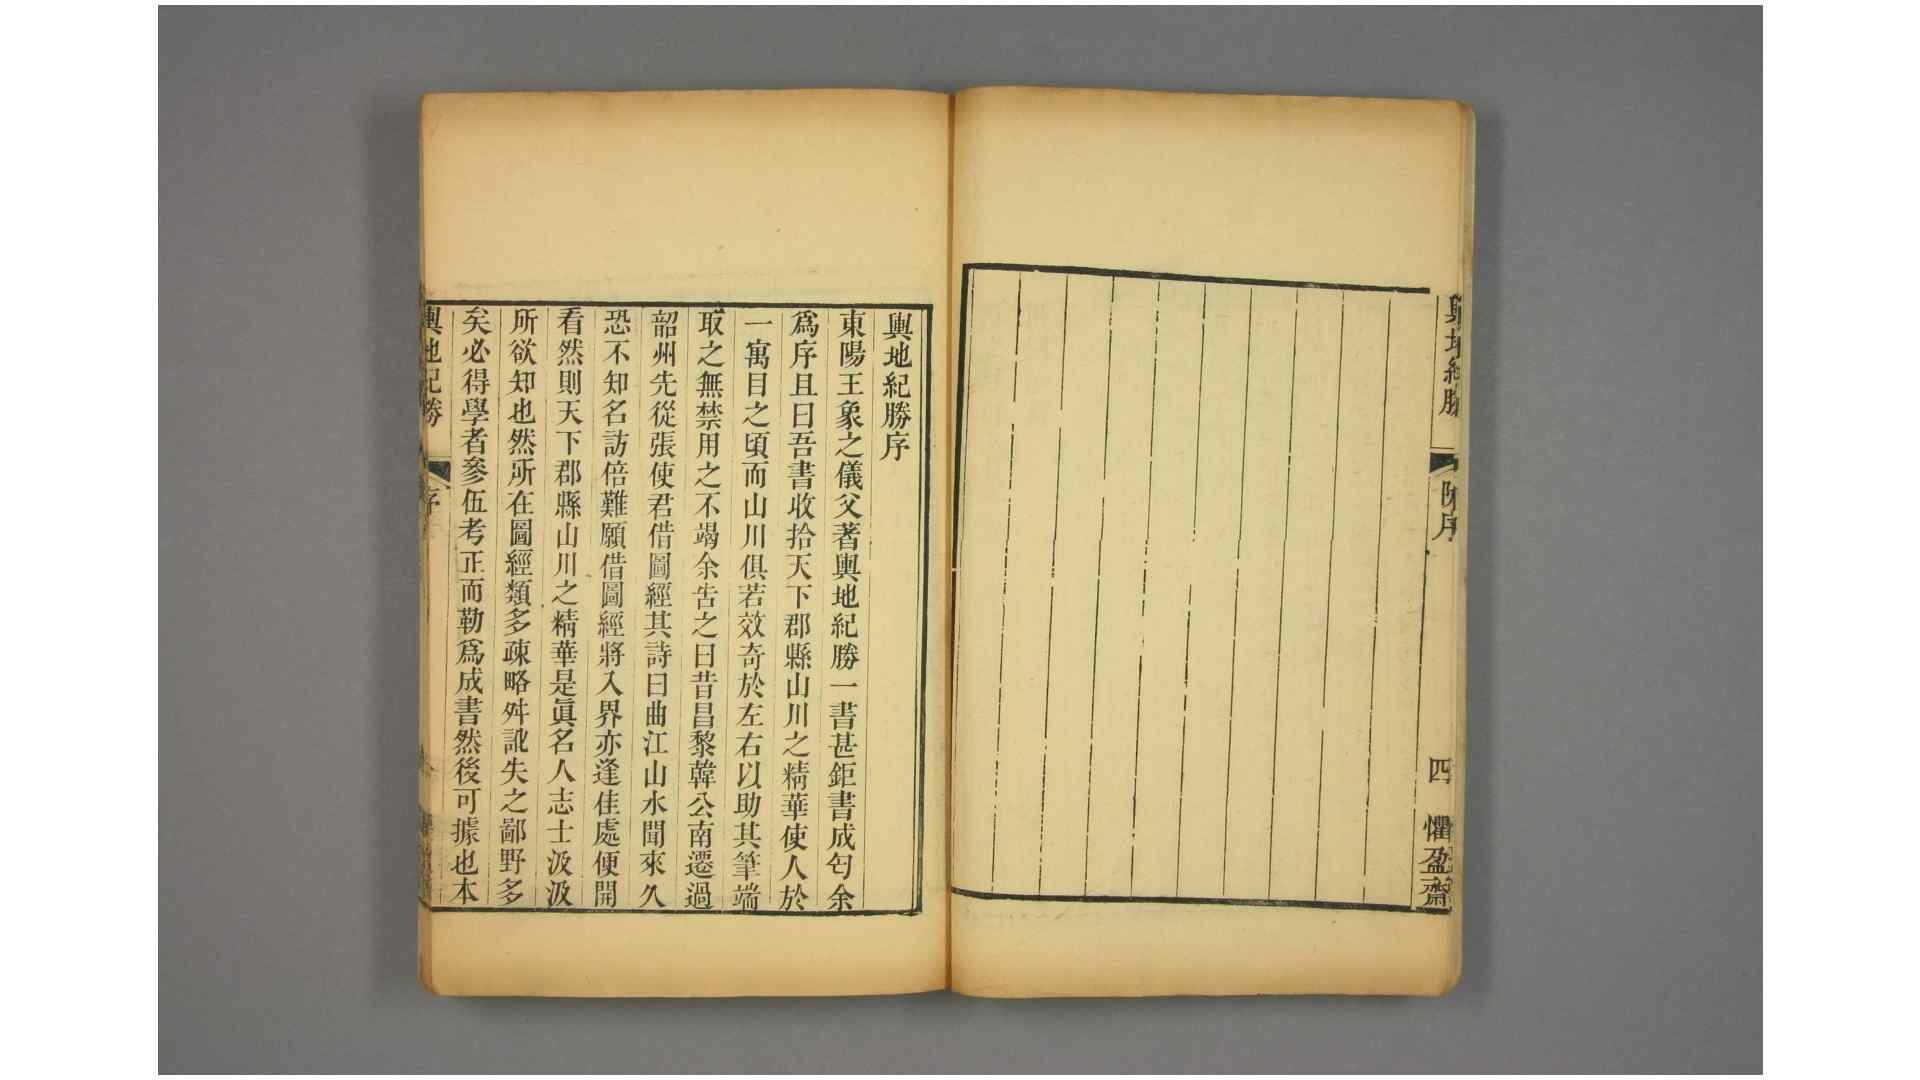 輿地紀勝
陳序
四
懼盈齋
輿地紀勝序
東陽王象之儀父著輿地紀勝一書甚鉅書成匄余
爲序且曰吾書收拾天下郡縣山川之精華使人於
一寓目之頃而山川俱若效奇於左右以助其筆端
取之無禁用之不竭余告之曰昔昌黎韓公南遷過
韶州先從張使君借圖經其詩曰曲江山水聞來久
恐不知名訪倍難願借圖經將入界亦逢佳處便開
看然則天下郡縣山川之精華是眞名人志士汲汲
所欲知也然所在圖經類多疎略舛訛失之鄙野多
矣必得學者參伍考正而勒爲成書然後可據也本
輿地紀勝
序